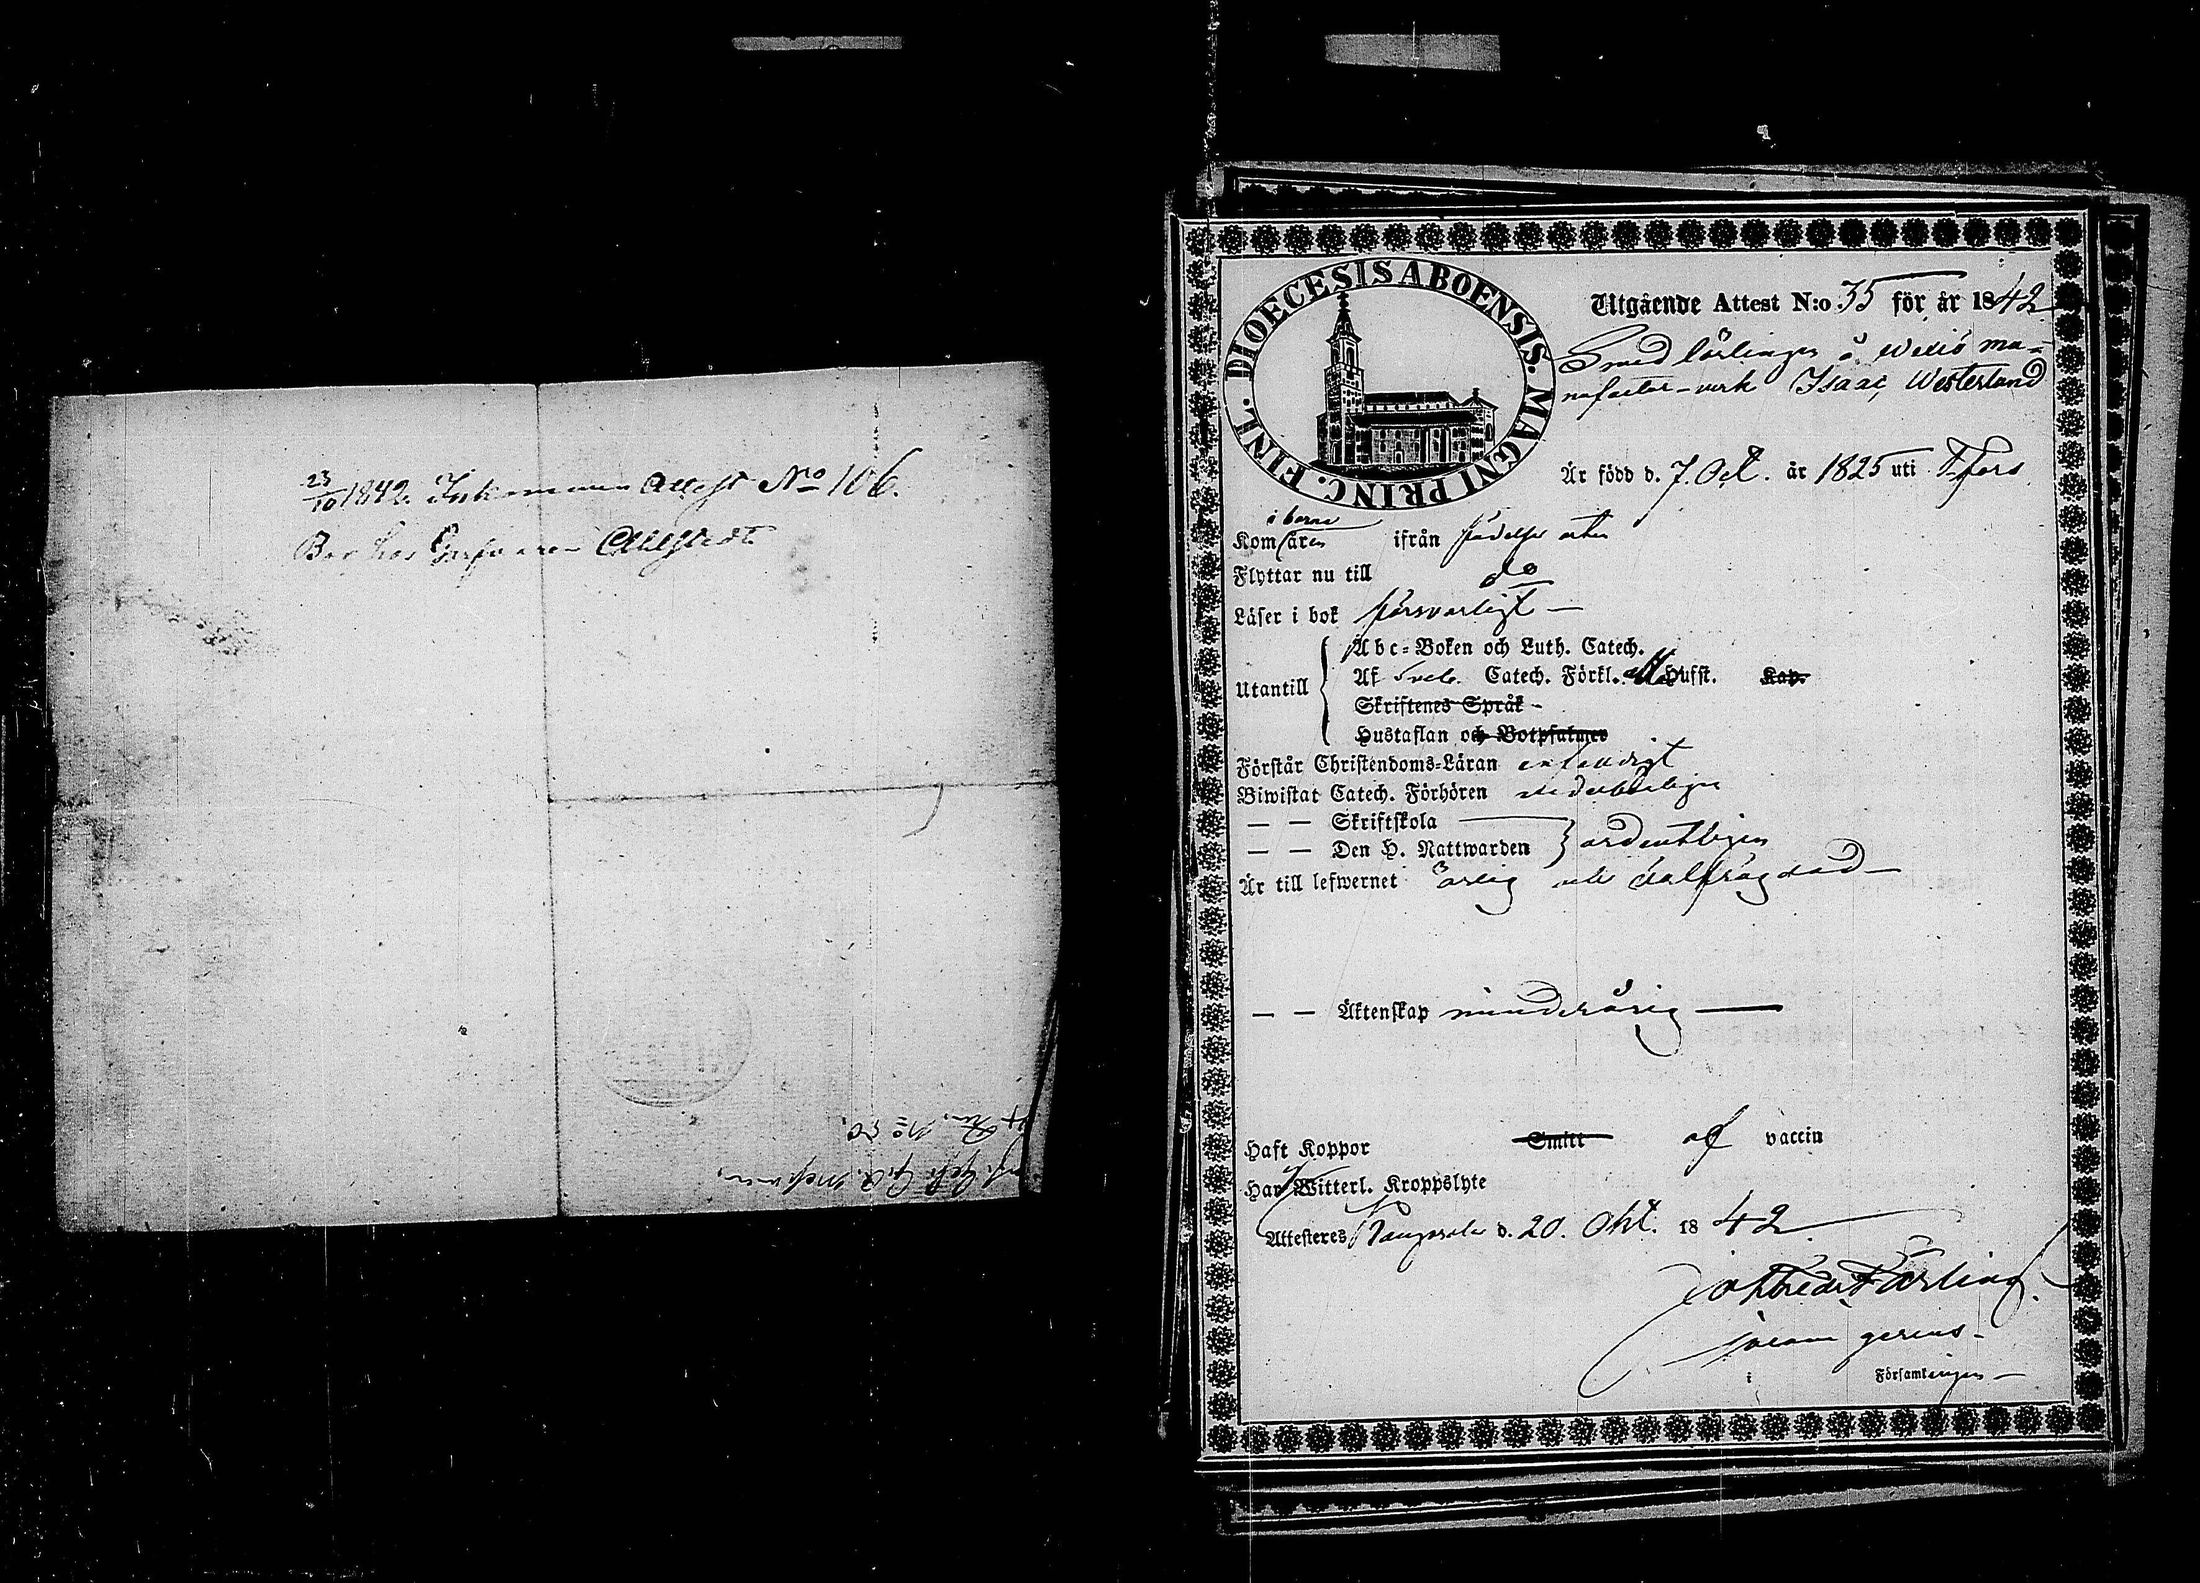 23/10 1842. Inkommen Attest No 106.
Bor hos Garfvaren Ahlstedt
DIOECESIS ABOENSIS. MAGNI PRINC. FINL.
Utgående Attest N:o 35 för år 1842
Smed lärlingen å Wesiö ma-
nufactur-verk Isaac Westerlund
Är född d. 7. Oct. år 1825 uti T:fors
i barna
Kom åren ifrån födelse orten
Flyttar nu till do
Läser i bok försvarligt —
Utantill
Abc-Boken och Luth. Catech.
Af Sveb. Catech. Förkl. Hufst. Kap.
Skriftenes Språk -
Hustaflan och Botpsalmer
Förstår Christendoms-Läran enfaldigt
Biwistat Catech. Förhören
— — Skriftskola
— — Den H. Nattwarden } ordentligen
Är till lefwernet ärlig och oalfrägdad —
— — Äktenskap minderårig —
Haft Koppor Smitt af vaccin
Har Witterl. Kroppslyte
Attesteres Kangasala d. 20. Okt. 1842
Joh Fredr Färling.
vicem gerens.
i Församlingen —